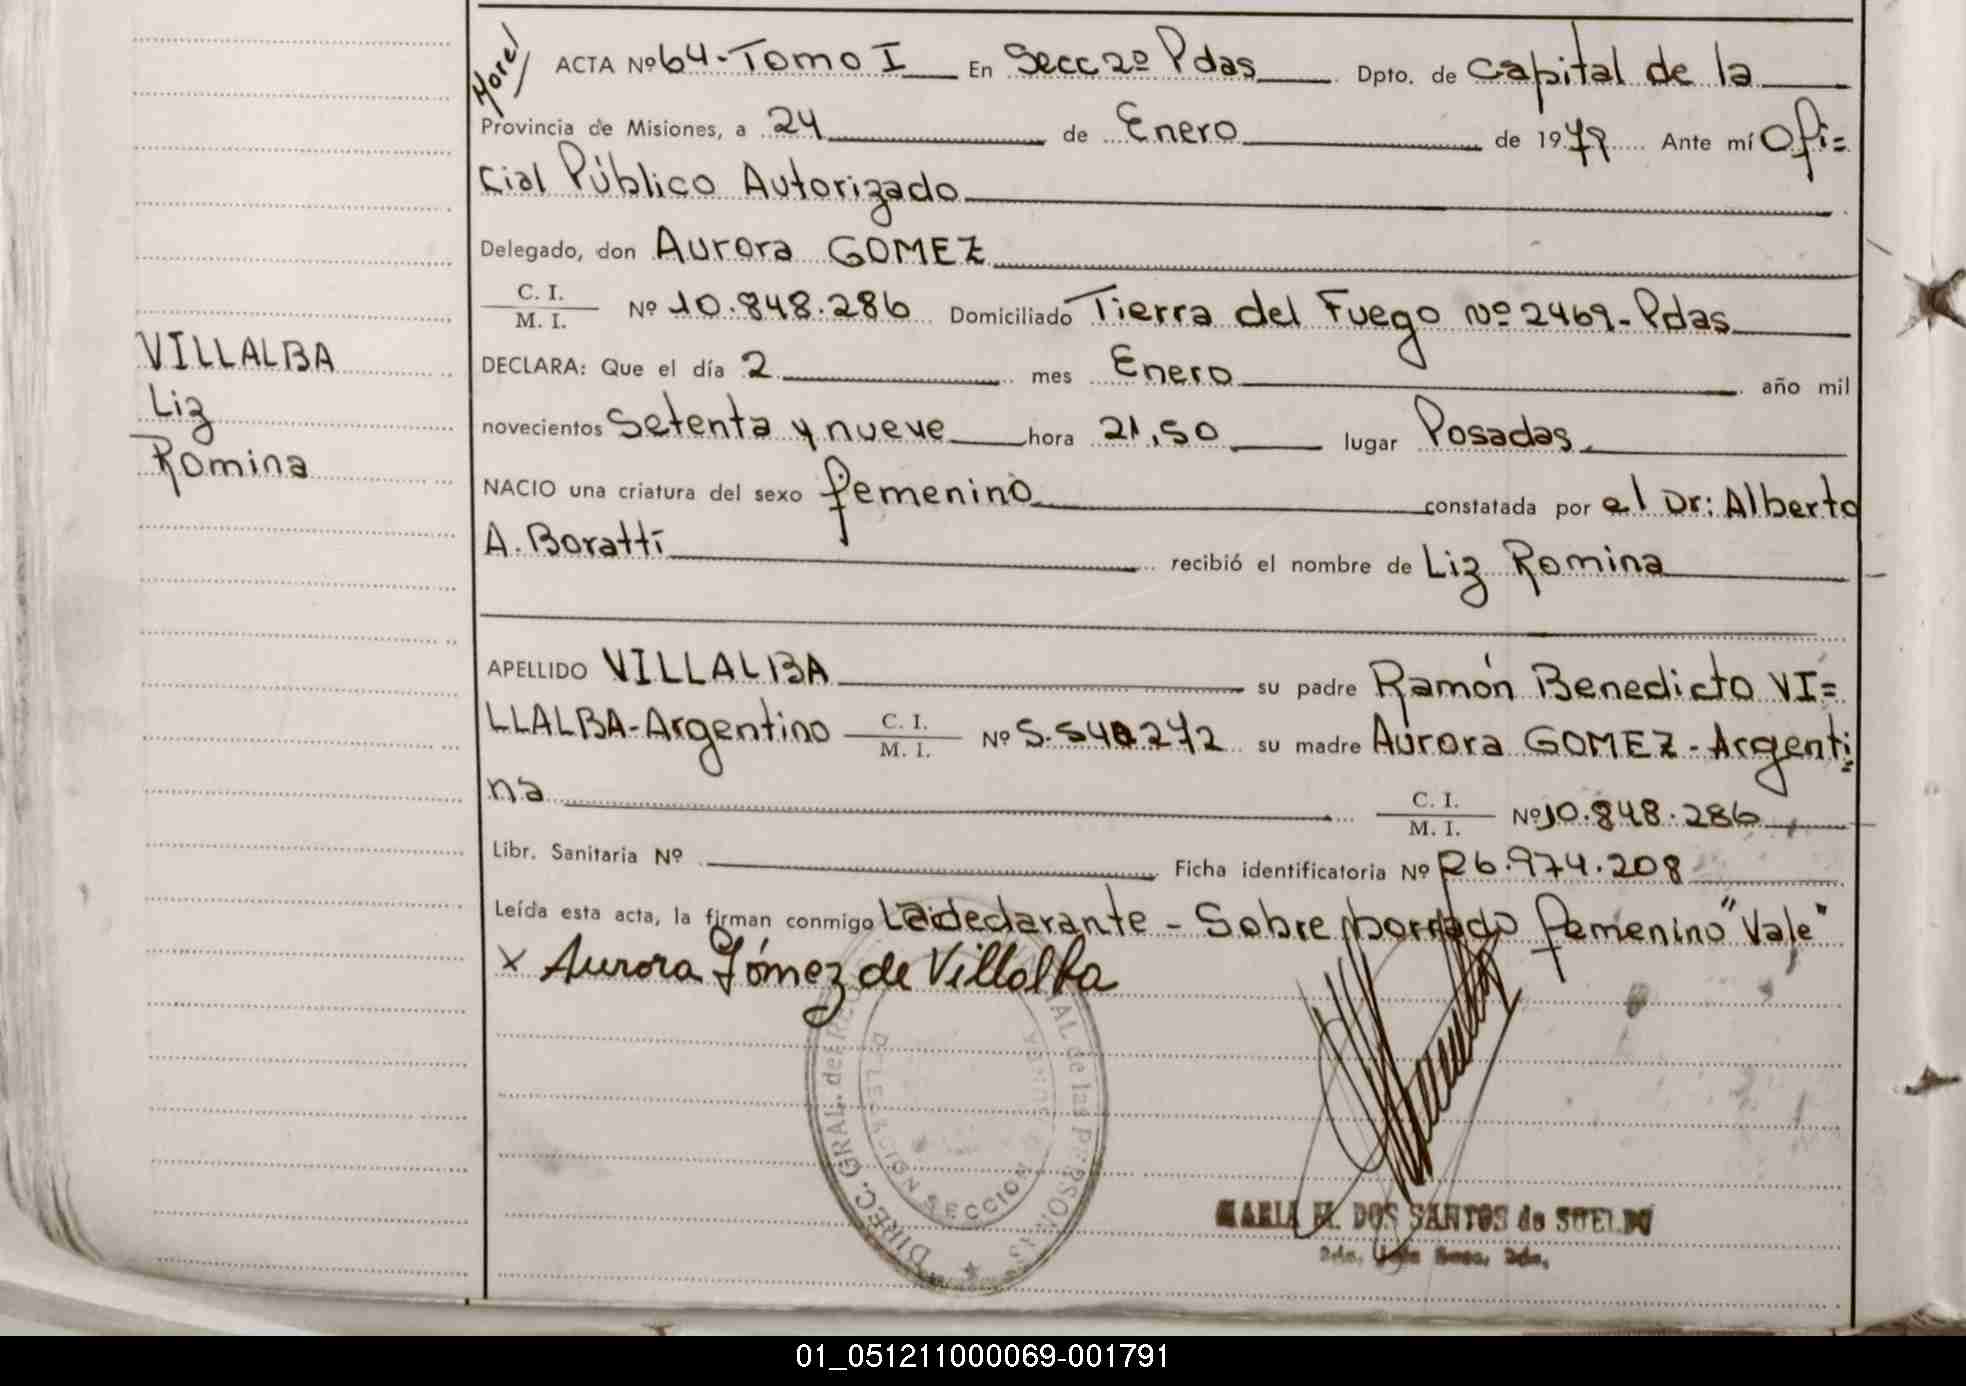 Morel
ACTA Nº 64-Tomo I En Secc 2º Pdas Dpto. de Capital de la
Provincia de Misiones, a 24 de Enero de 1979 Ante mí Ofi=
cial Público Autorizado
Delegado, don Aurora GOMEZ
C. I.
M. I. Nº 10.848.286 Domiciliado Tierra del Fuego Nº 2469-Pdas
VILLALBA
Liz
Romina
DECLARA: Que el día 2 mes Enero año mil
novecientos Setenta y nueve hora 21,50 lugar Posadas
NACIO una criatura del sexo femenino constatada por el Dr: Alberto
A. Boratti recibió el nombre de Liz Romina
APELLIDO VILLALBA su padre Ramón Benedicto VI=
LLALBA-Argentino C. I.
M. I. Nº 5.540.272 su madre Aurora GOMEZ-Argenti=
na C. I.
M. I. Nº 10.848.286
Libr. Sanitaria Nº Ficha identificatoria Nº 26.974.208
Leída esta acta, la firman conmigo La declarante - Sobre borrado femenino "Vale"
x Aurora Gómez de Villalba
DIREC. GRAL. de las PERSONAS
SECCION
MARIA M. DOS SANTOS de SUELDO
01_051211000069-001791